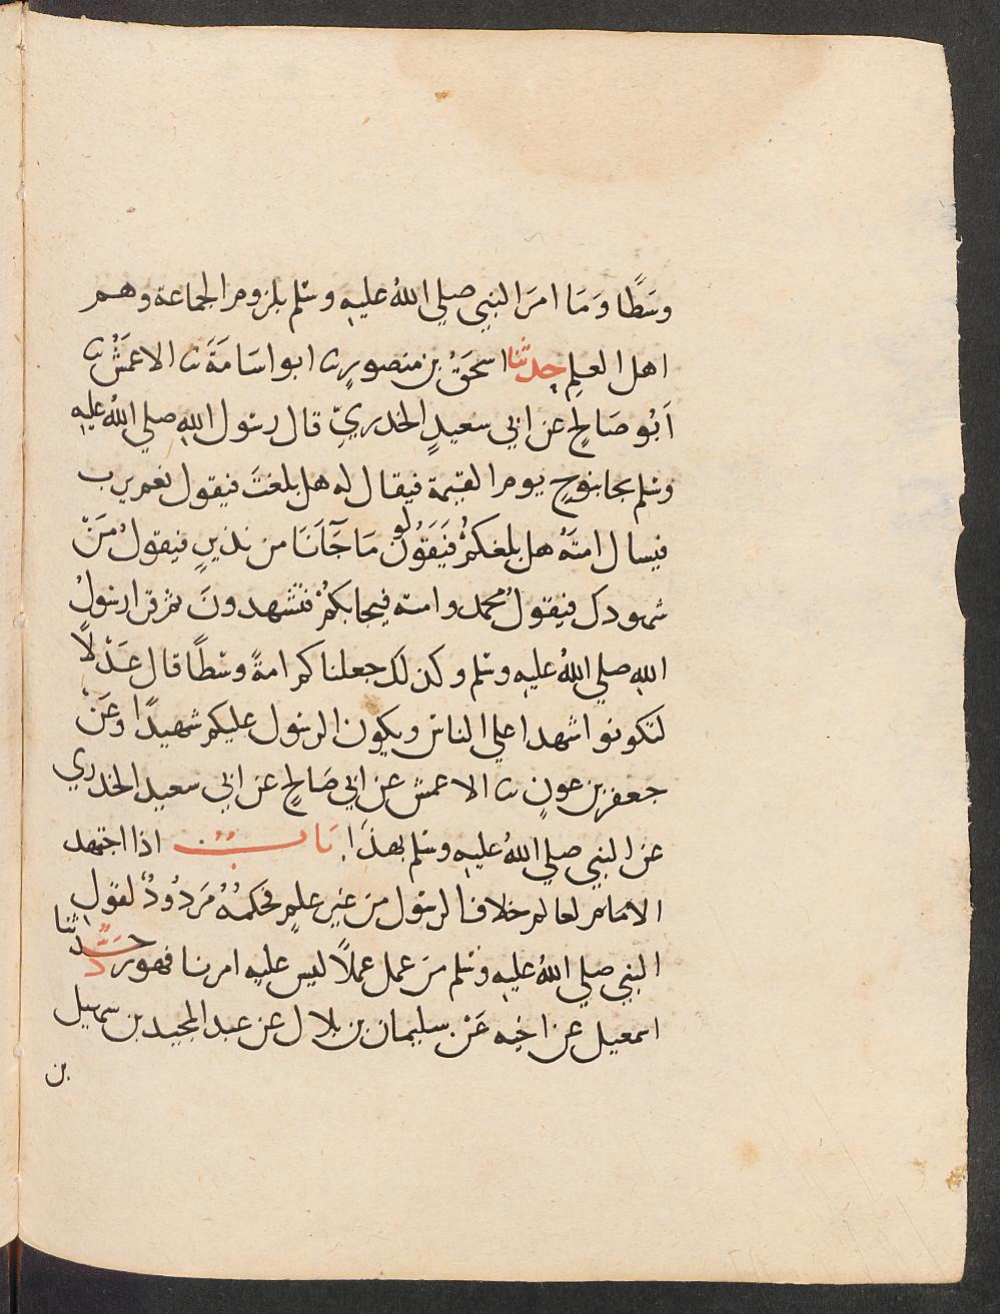 وسَطًا وَمَا امرَ النبي صلي اللهُ عليهِ وسَلم بلزوم الجماعة وهم
اهل العلمِ حدثنا اسحَقُ بن منصورٍ ثنا ابو اسَامَةَ ثنا الاعمَشُ ثنا
اَبُو صَالحٍ عن ابي سعيدٍ الخدريّ قال رسُول اللهِ صلي اللهُ عليهِ
وسلم يجا بنوحٍ يوم القيمة فيقال له هل بلغتَ فيقول نعم يرب
فيسال امتَهُ هل بلغكمْ فَيَقُولون مَا جَآنَا من نذيرٍ فيقولُ مَنْ
شهودك فيقولُ محمد وامته فيجابكمْ فتشهدونَ ثم قرا رسُولُ
اللهِ صلي اللهُ عليهِ وسلم وكذلك جعلناكم امةً وسَطًا قال عَدْلًا
لتكونوا شهدا علي الناس ويكون الرسول عليكم شهيدًا وعَنْ
جعفر بن عونٍ ثنا الاعمش عن ابي صَالحٍ عن ابي سعيد الخدري
عن النبي صلي اللهُ عليهِ وسلم بهذَا بَابٌ اذا اجتهد
الامام لعالم خلاف الرسُول من غير علمٍ فحكمُهُ مَردُودٌ لقولِ
النبي صلي اللهُ عليهِ وسلم مَن عمل عملًا ليس عليهِ امرنا فهو ردٌّ حدثنا
اسمعيل عن اخيه عَن سليمان بن بلال عن عبد المجيد بن سهيل
بن